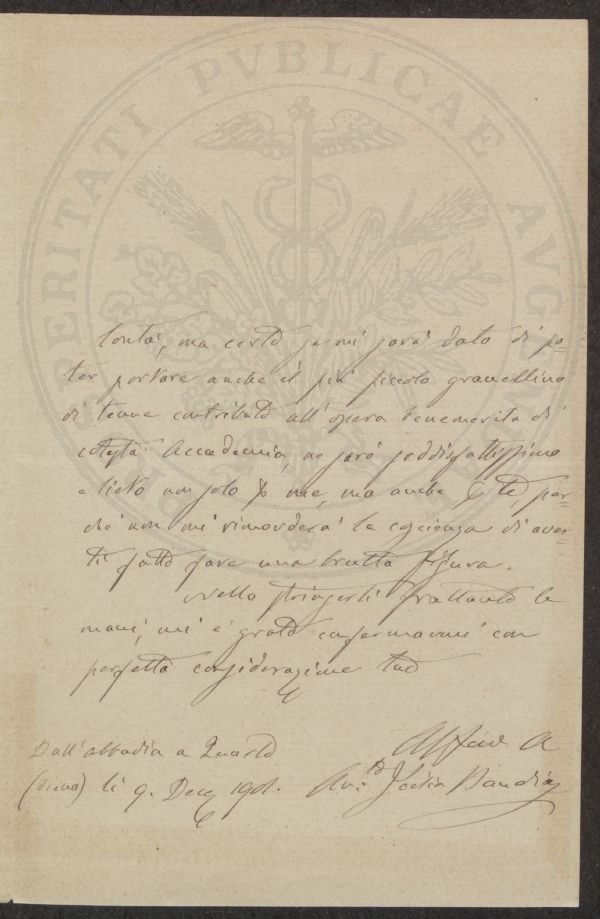 PROSPERITATI PVBLICAE AVGENDAE
lontà, ma certo se mi sarà dato di po=
ter portare anche il più piccolo granellino
di tenue contributo all'opera benemerita di
cotesta Accademia, ne sarò soddisfattissimo
e lieto non solo p me, ma anche p te, per=
chè non mi rimorderà la coscienza di aver=
ti fatto fare una brutta figura.
Nello stringerti frattanto le
mani, mi è grato confermarmi con
perfetta considerazione tuo
Dall'abbadia a Quarto
(Siena) li 9. Dec 1901.